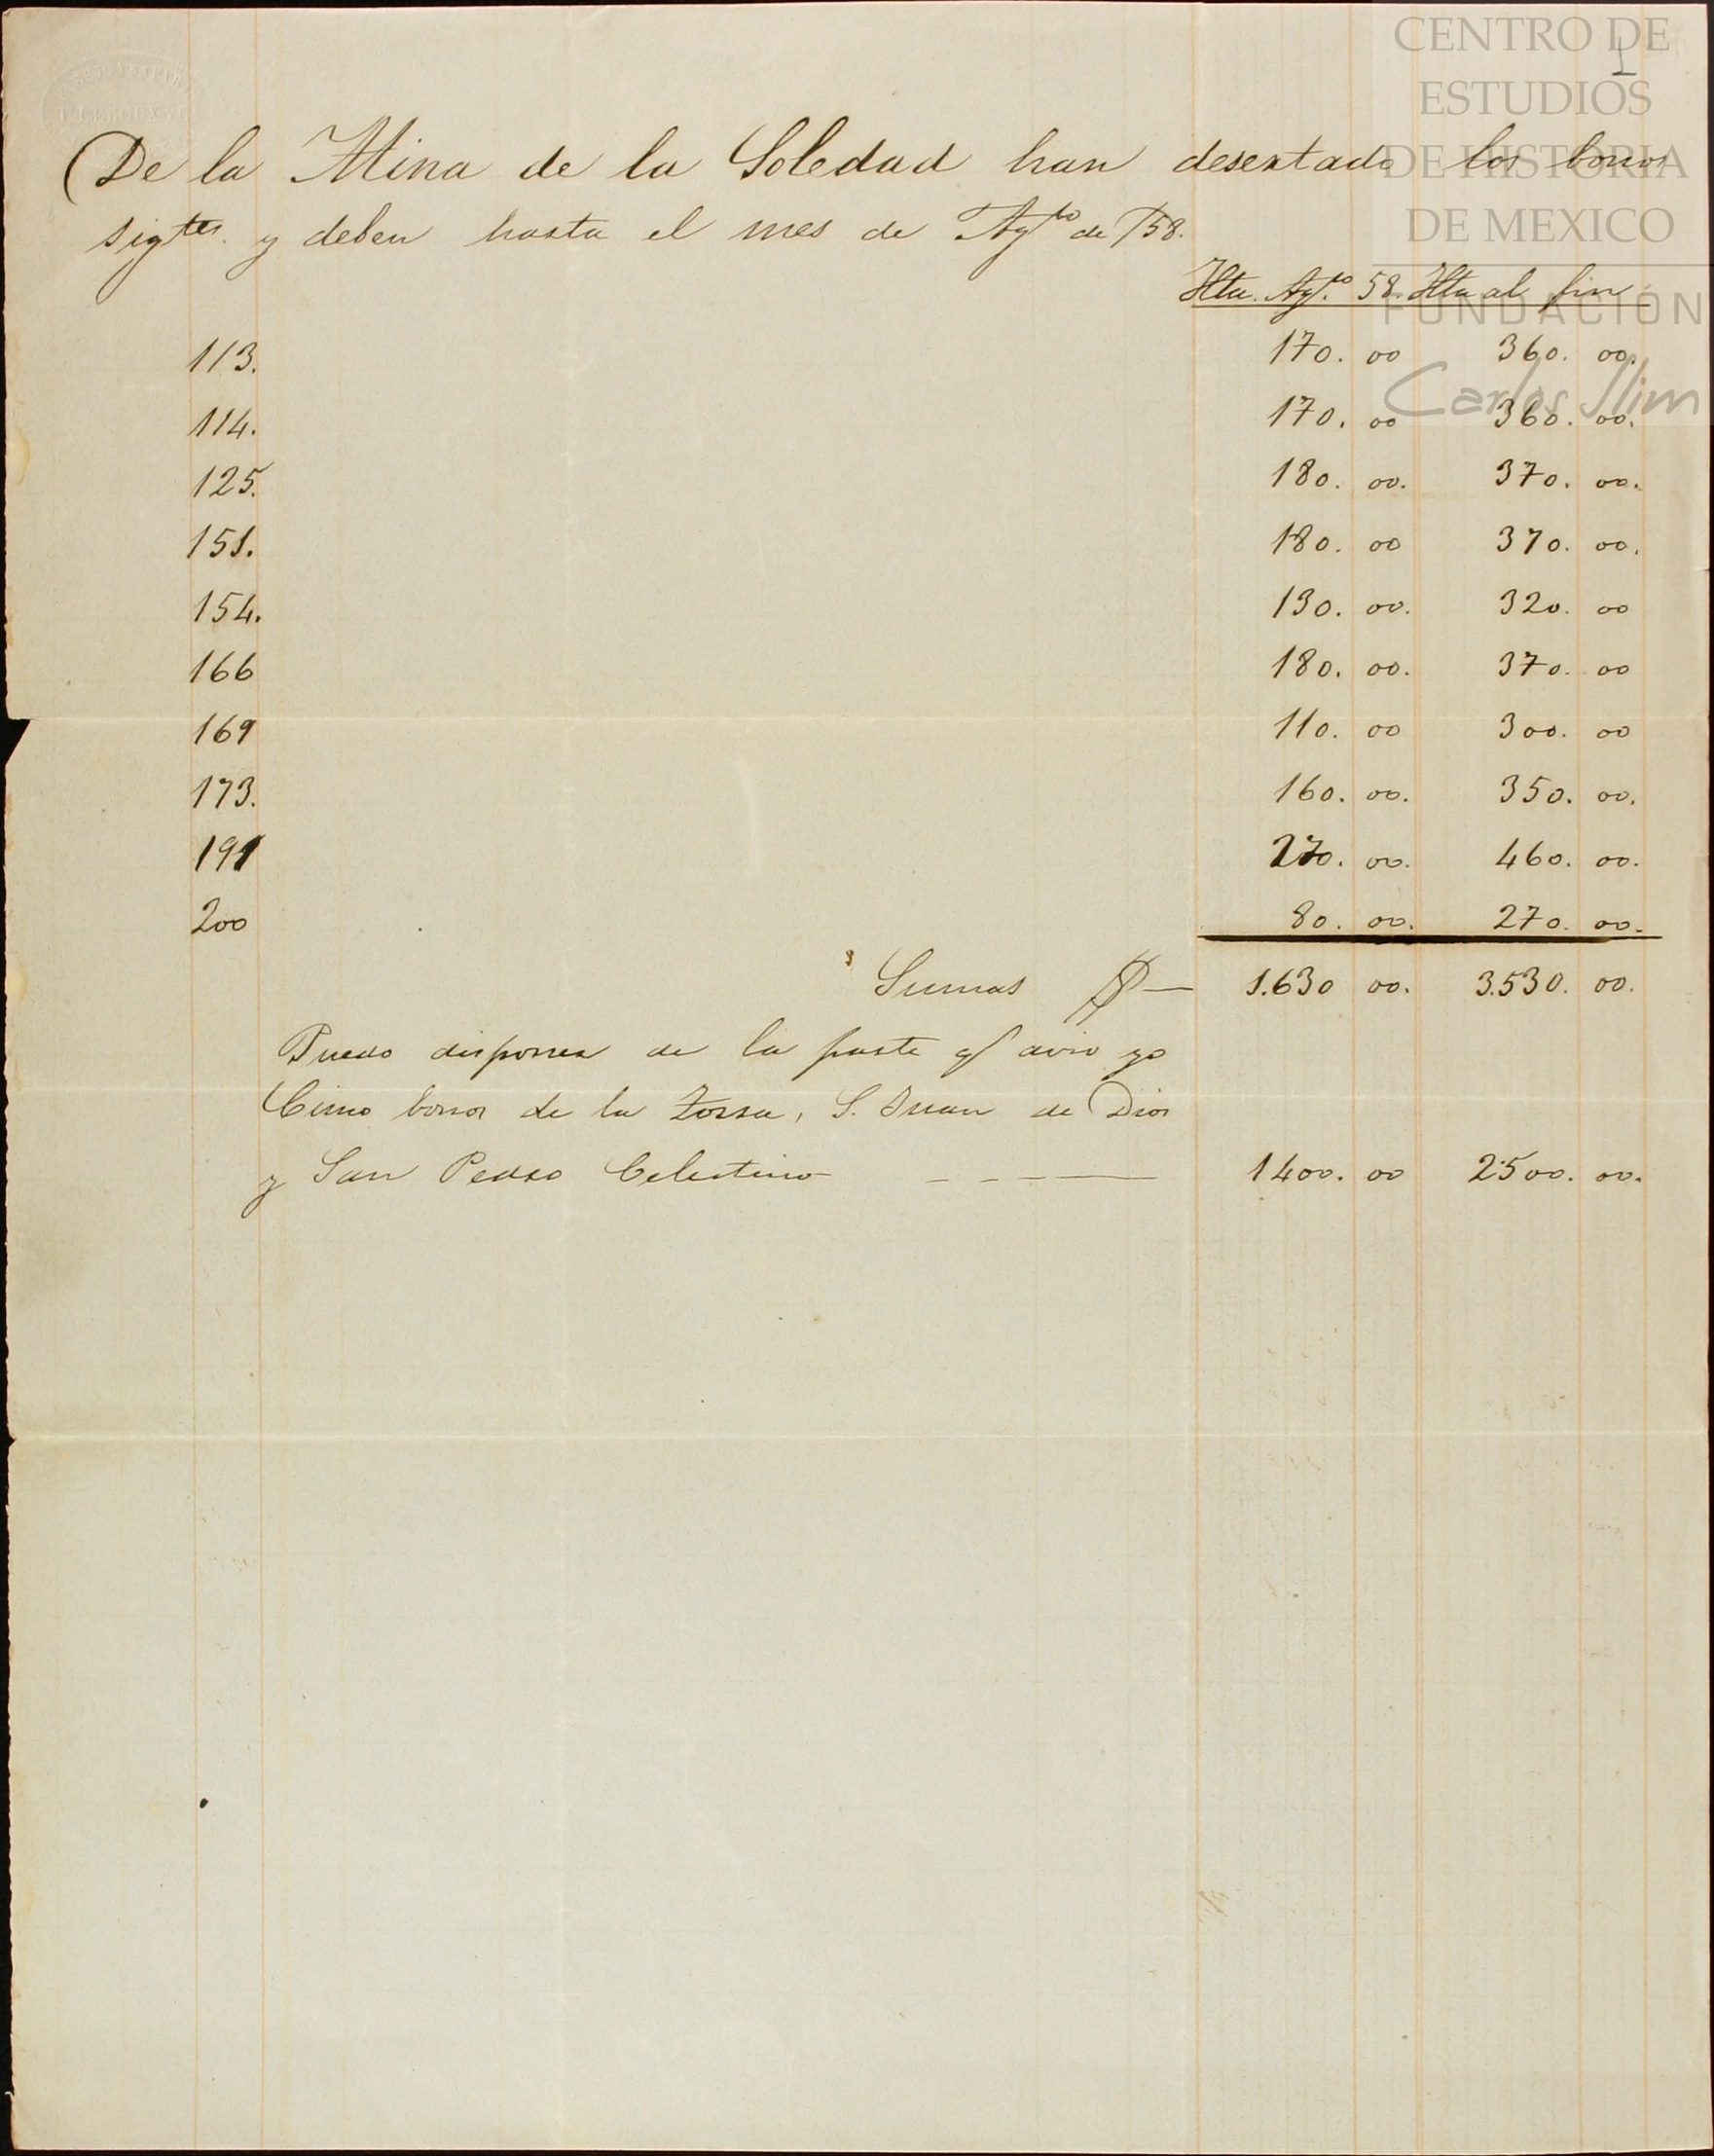 CENTRO DE
ESTUDIOS
DE HISTORIA
DE MEXICO
FUNDACION
Carlos Slim
1
De la Mina de la Soledad han desertado las barras
sigtes. y deben hasta el mes de Agto de 58.
Hta. Agto 58. Hta al fin
113. 170. 00 360. 00.
114. 170. 00 360. 00.
125. 180. 00. 370. 00.
151. 180. 00 370. 00.
154. 130. 00. 320. 00
166 180. 00. 370. 00
169 110. 00 300. 00
173. 160. 00. 350. 00.
191 270. 00. 460. 00.
200 80. 00. 270. 00.
Sumas $ — 1.630 00. 3.530. 00.
Puedo disponer de la parte q/ aviso yo
Cinco barras de la Zorra, S. Juan de Dios
y San Pedro Celestino - - - — 1400. 00 2500. 00.